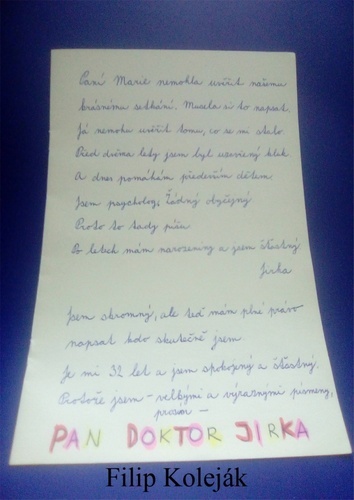 Paní Marie nemohla uvěřit našemu
krásnému setkání. Musela si to napsat.
Já nemohu uvěřit tomu, co se mi stalo.
Před dvěma lety jsem byl uzavřený kluk
A dnes pomáhám především dětem.
Jsem psycholog, Žádný obyčejný
Proto to tady píšu
Po letech mám narozeniny a jsem šťastný
Jirka
Jsem skromný, ale teď mám plné právo
napsat kdo skutečně jsem
Je mi 32 let a jsem spokojený a šťastný.
Protože jsem - velkými a výraznými písmeny,
prosím -
PAN DOKTOR JIRKA
Filip Koleják